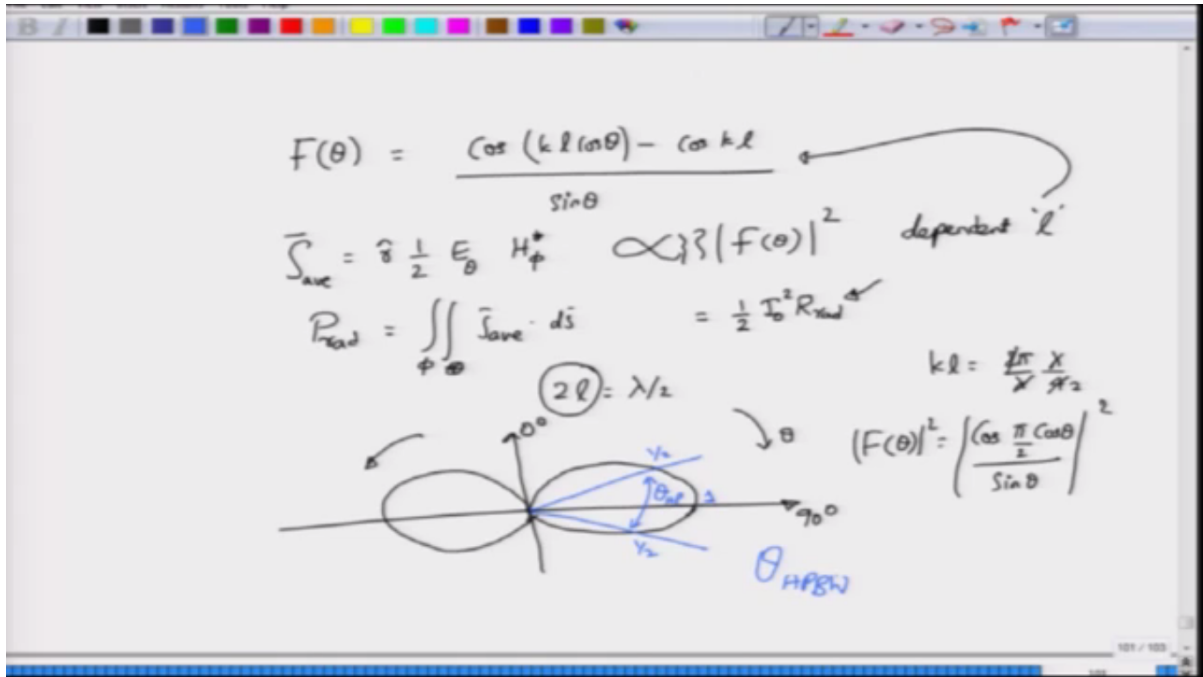 F(θ) = Cos (kl cosθ) – Cos kl
sinθ
S̄ave = r̂ 1/2 Eθ Hφ* ∝ |F(θ)|² dependent 'l'
Prad = ∬ S̄ave · ds̄ = 1/2 I₀² Rrad
φ θ
kl = 2π/λ λ/4 2
2l = λ/2
|F(θ)|² = |Cos π/2 Cosθ / Sinθ|²
0°
θ
1/2
θHP
1
90°
1/2
θHPBW
101 / 103